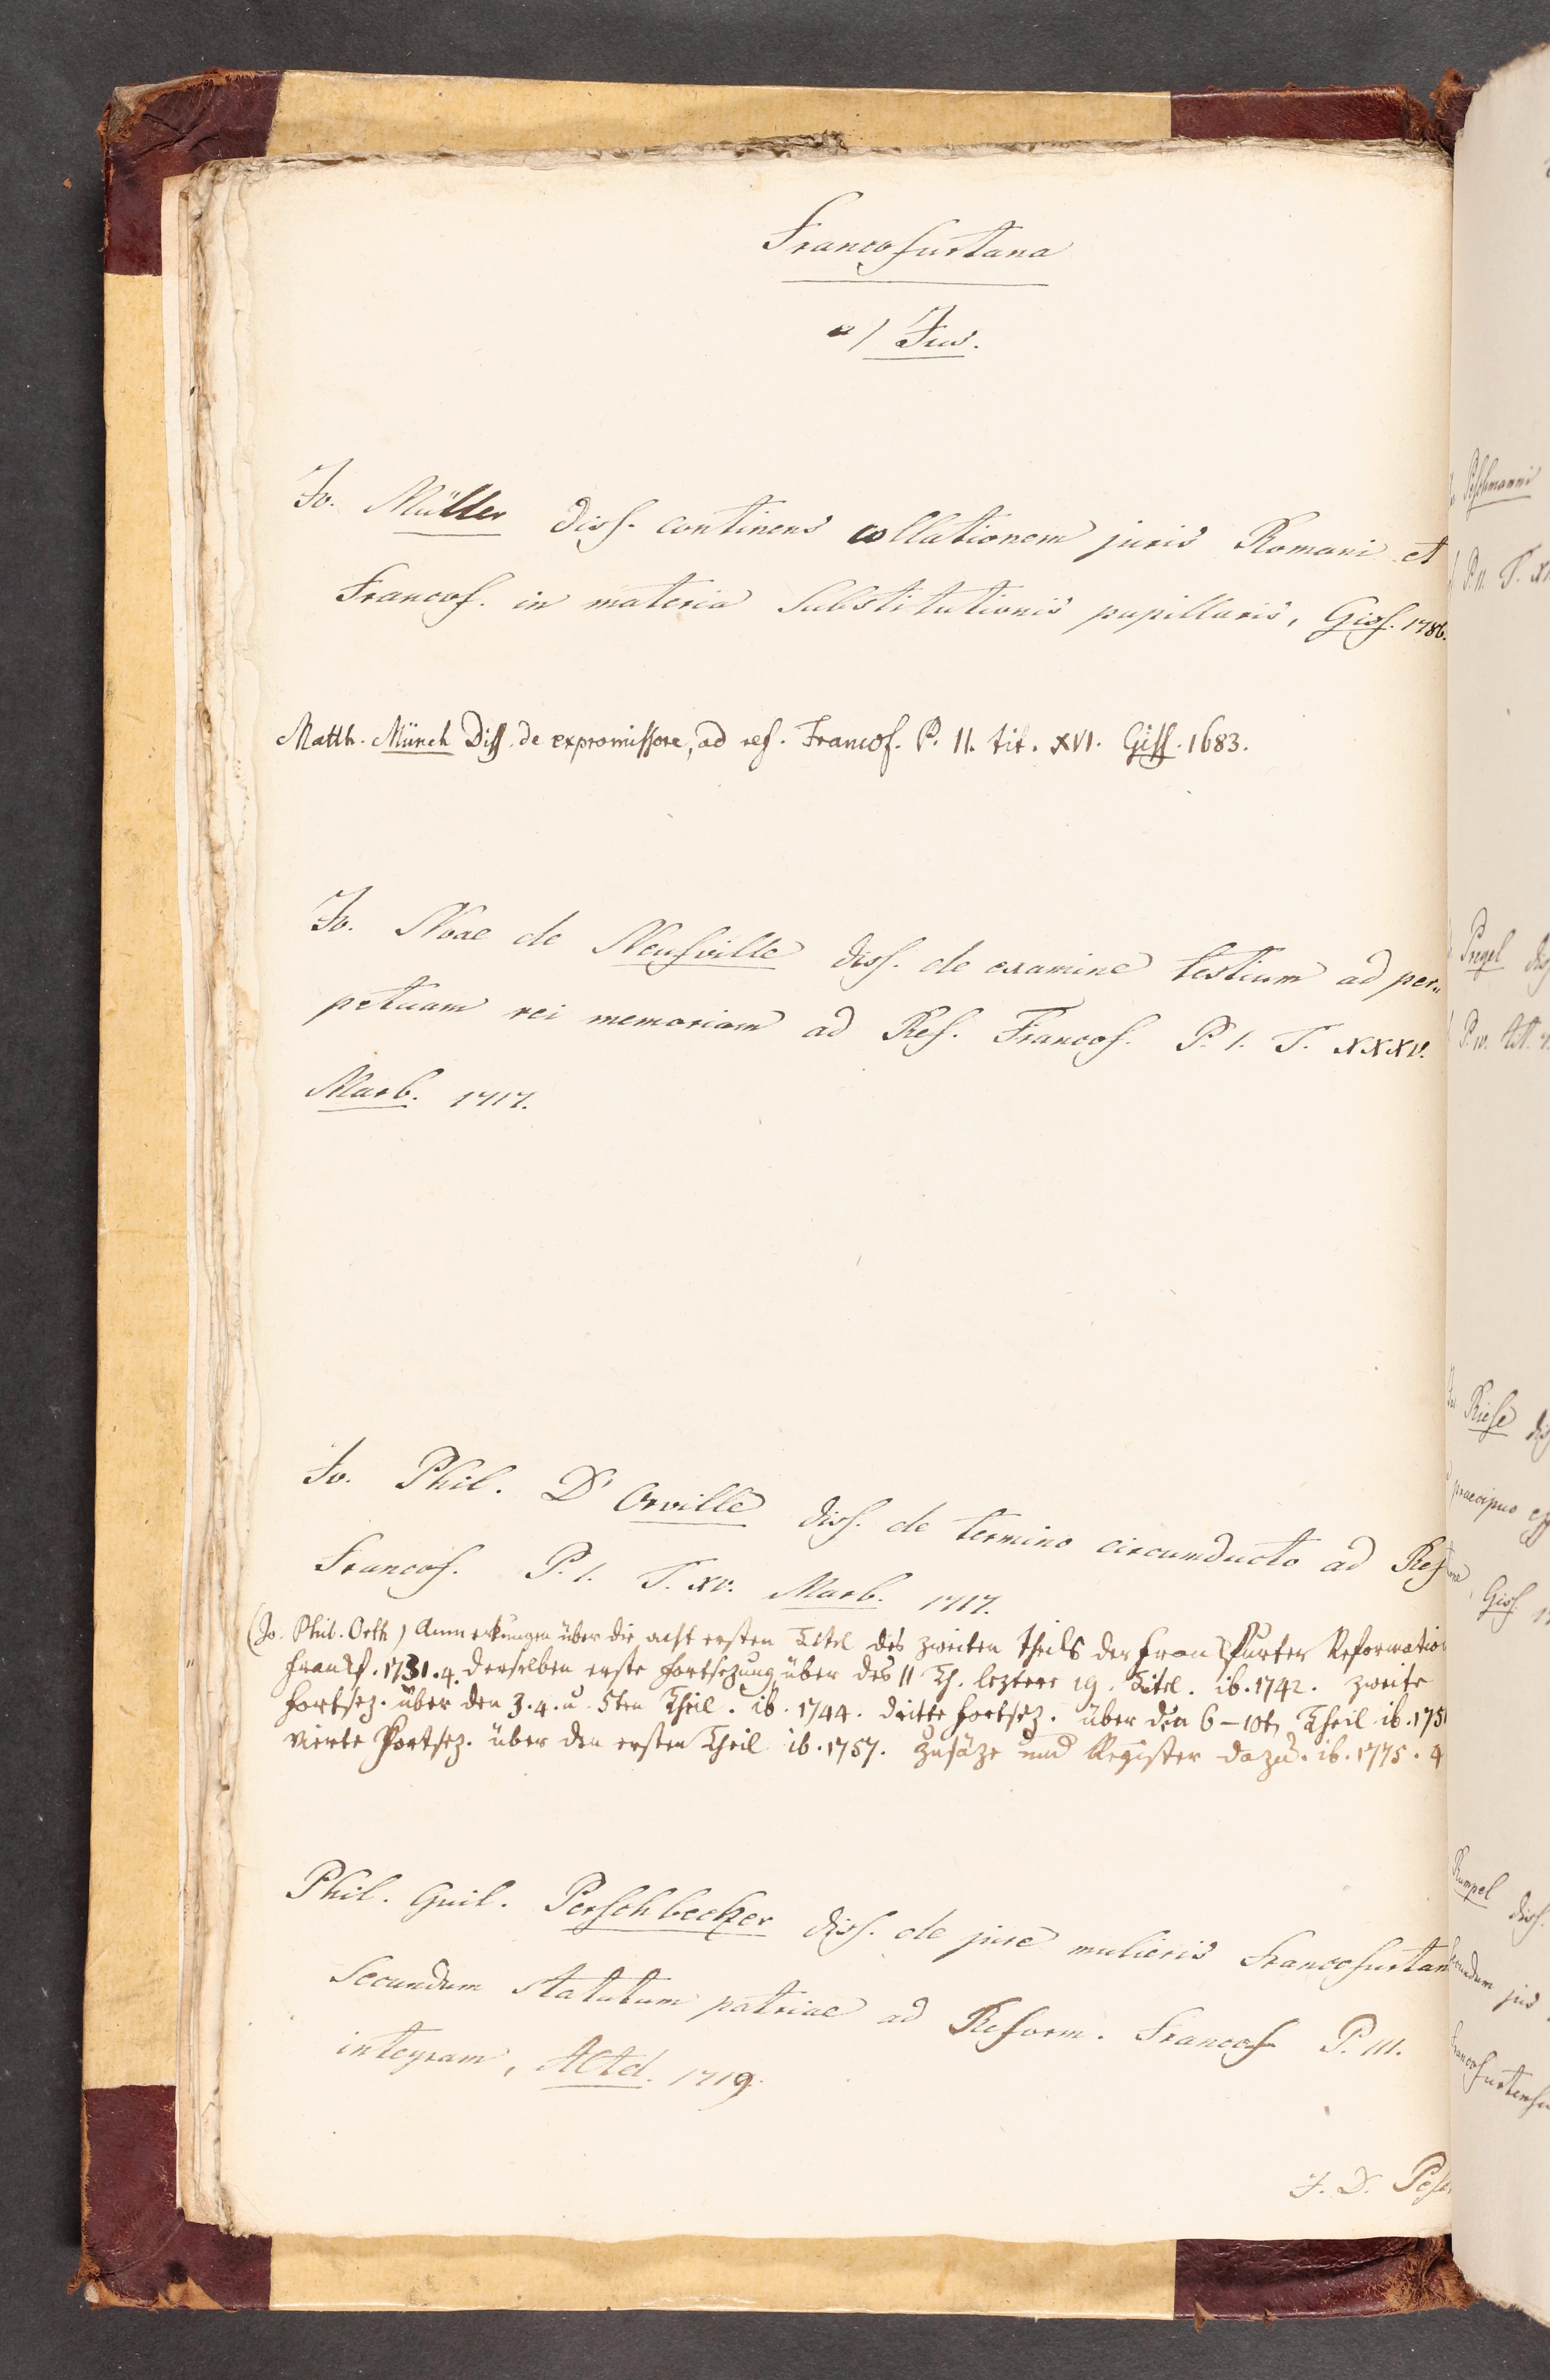 Francofurtana
a) Jus.
Jo. Müller diss. continens collationem juris Romani et
Francof. in materia substitutionis pupillaris, Giss. 1786.
Matth. Münch Diss. de expromissore, ad ref. Francof. P. II. tit. XVI. Giss. 1683.
Jo. Noae de Neufville diss. de examine testium ad per„
petuam rei memoriam ad Ref. Francof. P. I. T. XXXV.
Marb. 1717.
Jo. Phil. D'Orville diss. de termino circumducto ad Ref
Francof. P. I. T. XV. Marb. 1717.
(Jo. Phil. Orth) Anmerkungen über die acht ersten Titel des zweiten Theils der Frankfurter Reformatio
Frankf. 1731. 4. derselben erste Fortsezung über des II Th. leztere 19. Titel. ib. 1742. zweite
Fortsez. über den 3. 4. u. 5ten Theil. ib. 1744. dritte Fortsez. über den 6-10t. Theil ib. 175
vierte Fortsez. über den ersten Theil ib. 1757. Zusäze und Register dazu. ib. 1775. 4
Phil. Guil. Perschbecker diss. de jure mulieris Francofurtan
secundum statutum patriae ad Reform. Francof P. III.
integram, Altd. 1719.
J. D. Pesch
Peschmanni
P. II. T. XI
Pregel diss
P. IV. tit.
Riese dis
praecipuo eff
Giss. 17
Rumpel diss.
secundum jus
Francofurtensi